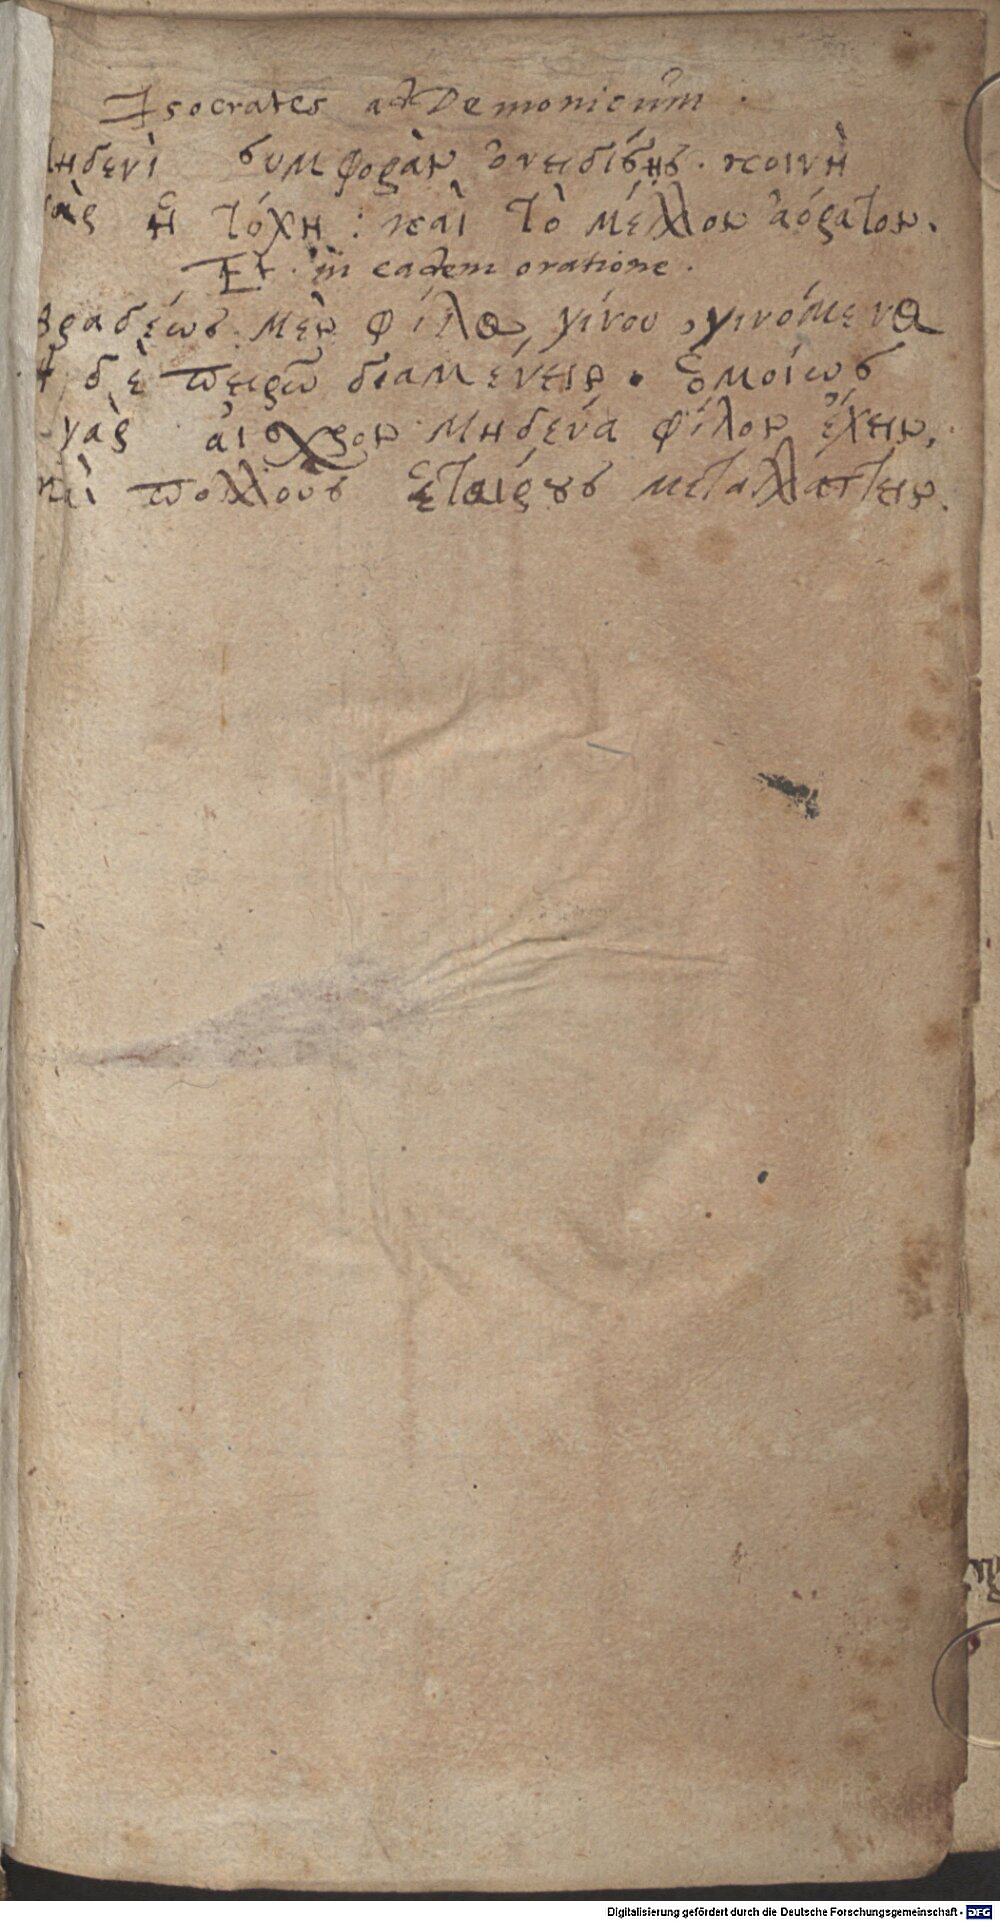 Isocrates ad Demonicum.
μηδενὶ συμφορὰν ὀνειδίσῃς. κοινὴ
γὰρ ἡ τύχη: καὶ τὸ μέλλον ἀόρατον.
Et in eadem oratione.
βραδέως μὲν φίλος γίνου, γινόμενος
δὲ πειρῶ διαμένειν. ὁμοίως
γὰρ αἰσχρον μηδένα φίλον ἔχειν,
καὶ πολλοὺς ἑταίρους μεταλλάττειν.
Digitalisierung gefördert durch die Deutsche Forschungsgemeinschaft - DFG